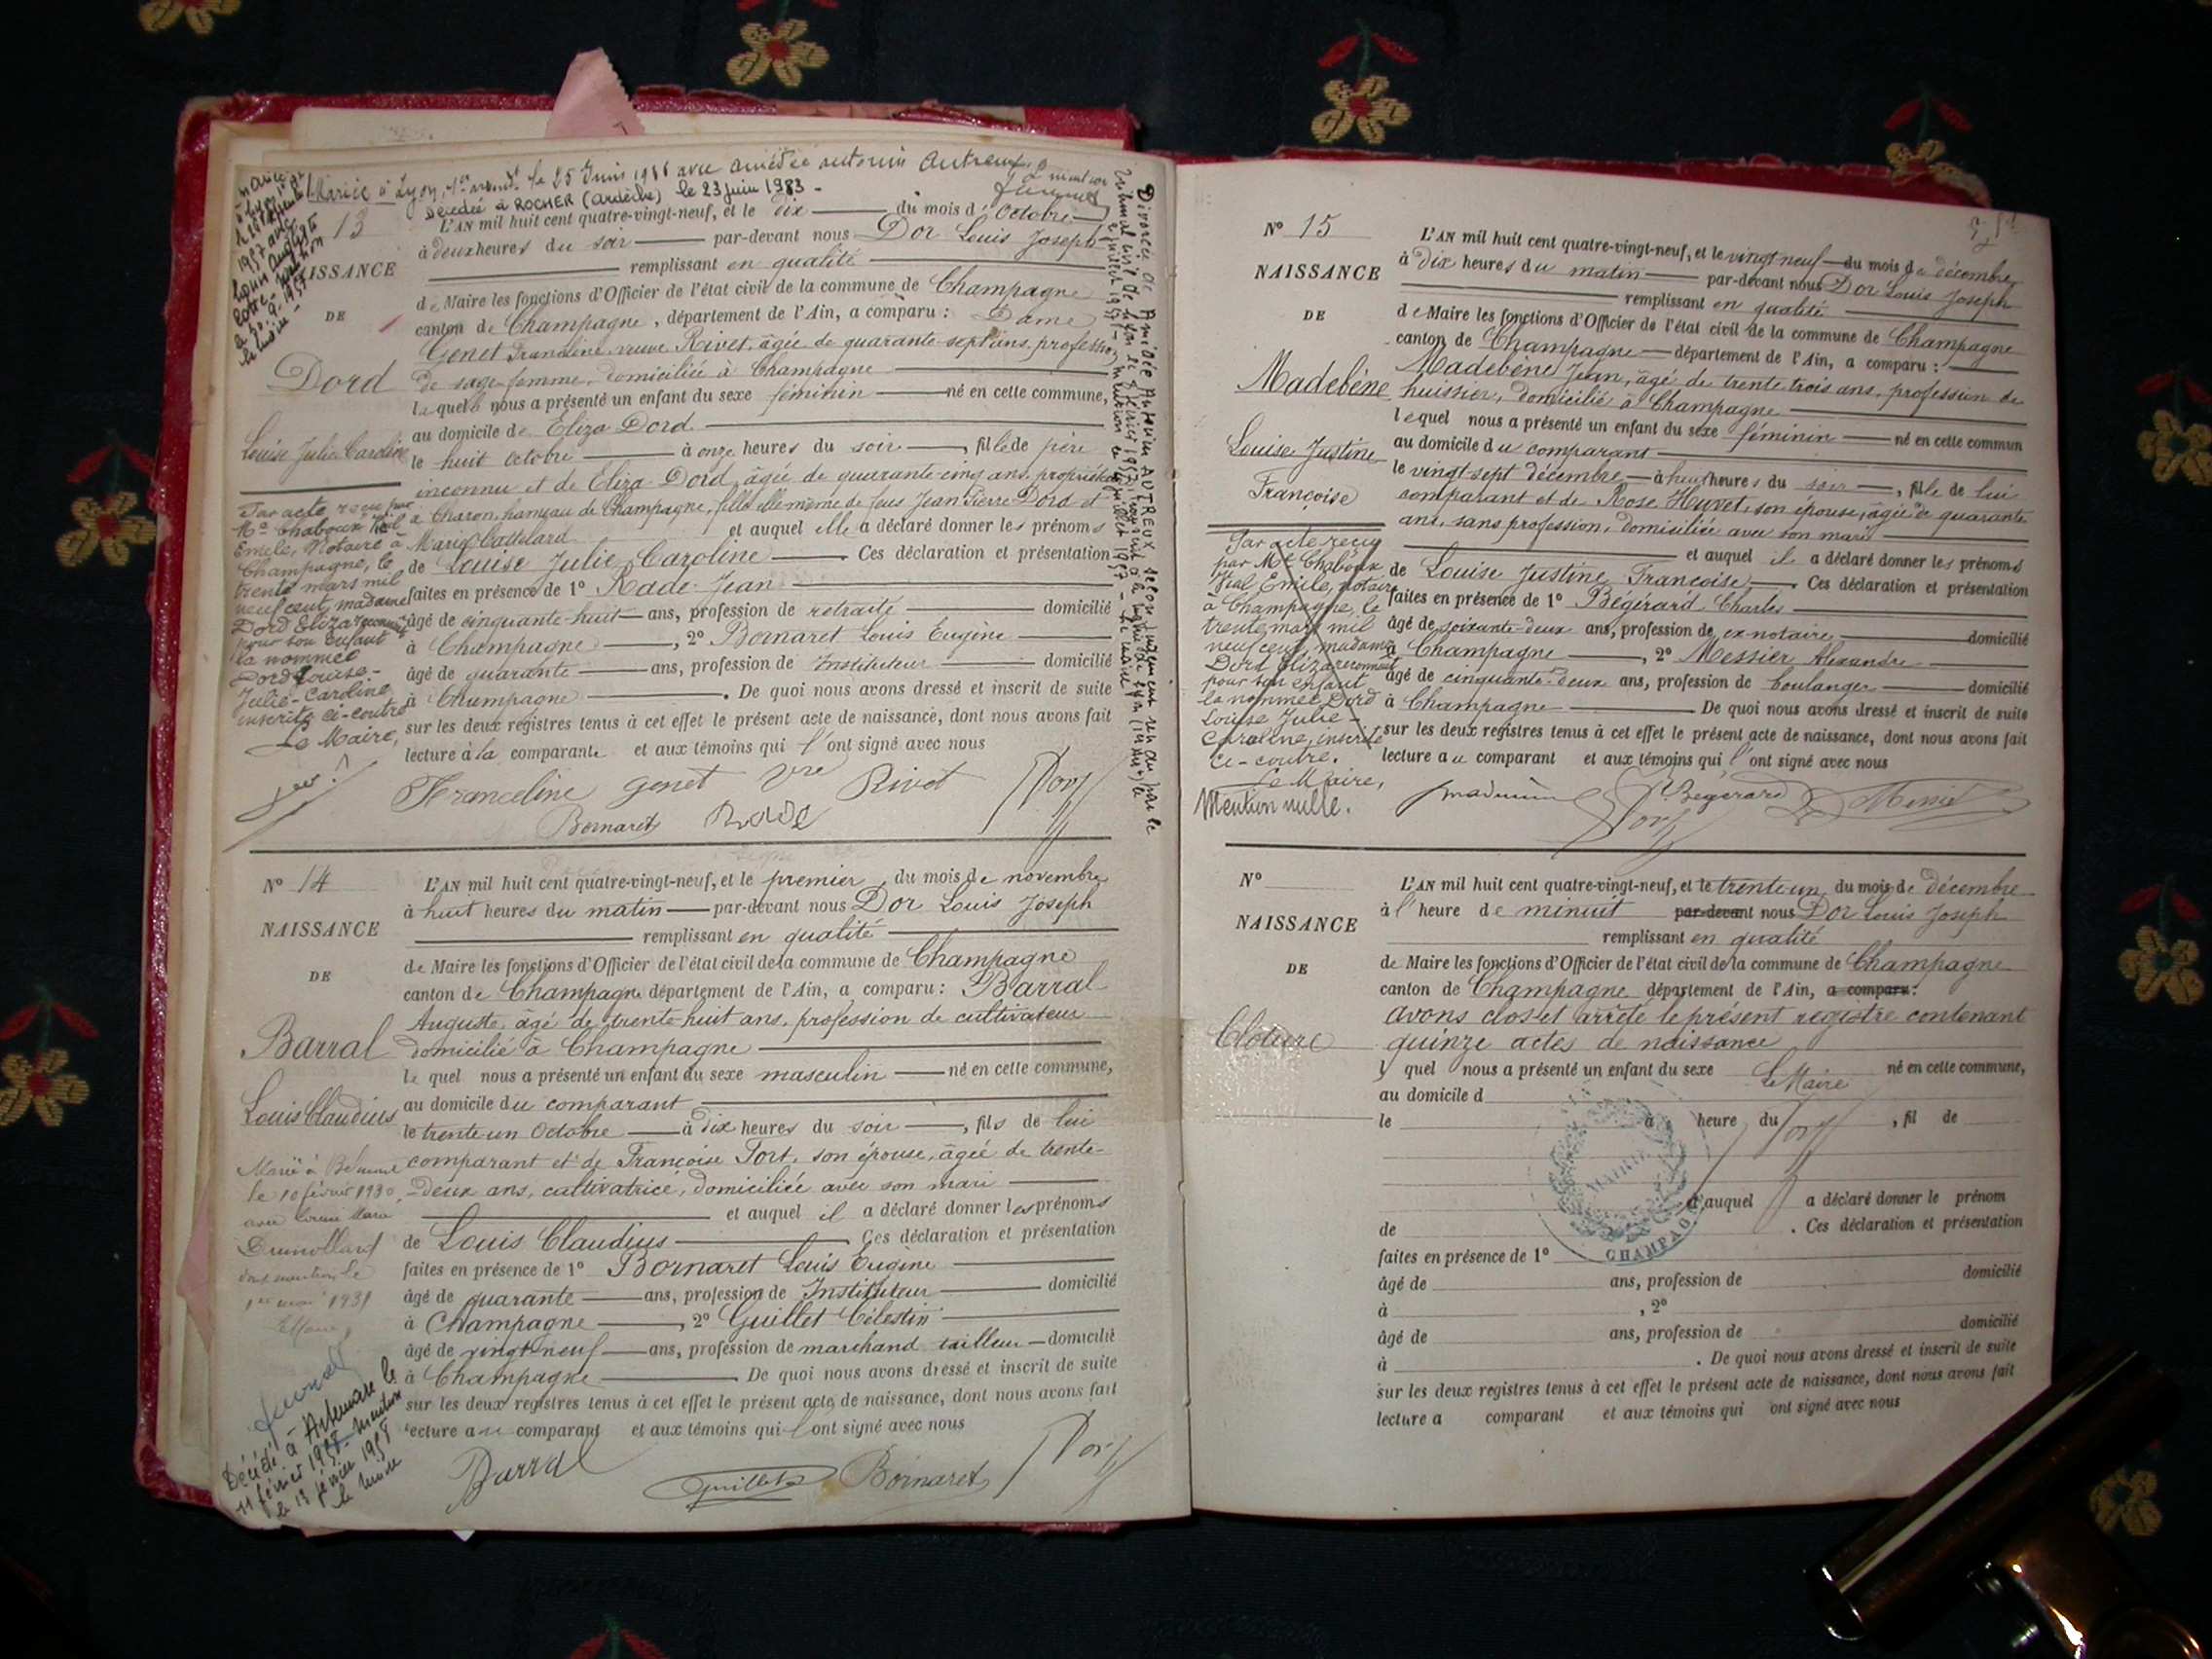 Mariée à Lyon, le 25 Juin 19 avec Amédée Antonin Autreux
Décédée à ROCHER (Ardèche) le 23 juin 1983 -
13
NAISSANCE
DE
Dord
Louise Julie Caroline
L'AN mil huit cent quatre-vingt-neuf, et le dix du mois d'Octobre
à deux heures du soir par-devant nous Dor Louis Joseph
remplissant en qualité
de Maire les fonctions d'Officier de l'état civil de la commune de Champagne
canton de Champagne, département de l'Ain, a comparu : Dame
Genet Francline veuve Rivet, âgée de quarante-sept ans, profession
de sage-femme, domiciliée à Champagne
laquelle nous a présenté un enfant du sexe féminin né en cette commune,
au domicile de Eliza Dord
le huit Octobre à onze heures du soir, fille de père
inconnu et de Eliza Dord, âgée de quarante cinq ans, propriétaire
à Charon, hameau de Champagne, fille elle même de feus Jean Pierre Dord et
Marie Cattelard et auquel elle a déclaré donner les prénoms
de Louise Julie Caroline Ces déclaration et présentation
faites en présence de 1° Rade Jean
âgé de cinquante-huit ans, profession de retraité domicilié
à Champagne, 2° Bornaret Louis Eugène
âgé de quarante ans, profession de Instituteur domicilié
à Champagne. De quoi nous avons dressé et inscrit de suite
sur les deux registres tenus à cet effet le présent acte de naissance, dont nous avons fait
lecture à la comparante et aux témoins qui l'ont signé avec nous
Franceline genet vve Rivet Dor
Bornaret Rade
Par acte reçu par
Me Chaboux Vital
Emile, Notaire à
Champagne, le
trente mars mil
neuf cent, madame
Dord Eliza reconnait
pour son enfant
la nommée
Dord Louise-
Julie-Caroline
inscrite ci-contre
Le Maire,
N° 14
NAISSANCE
DE
Barral
Louis Claudius
L'AN mil huit cent quatre-vingt-neuf, et le premier du mois de novembre
à huit heures du matin par-devant nous Dor Louis Joseph
remplissant en qualité
de Maire les fonctions d'Officier de l'état civil de la commune de Champagne
canton de Champagne département de l'Ain, a comparu : Barral
Auguste, âgé de trente huit ans, profession de cultivateur
domicilié à Champagne
lequel nous a présenté un enfant du sexe masculin né en cette commune,
au domicile du comparant
le trente un Octobre à dix heures du soir, fils de lui
comparant et de Françoise Fort, son épouse, âgée de trente-
-deux ans, cultivatrice, domiciliée avec son mari
et auquel il a déclaré donner les prénoms
de Louis Claudius Ces déclaration et présentation
faites en présence de 1° Bornaret Louis Eugène
âgé de quarante ans, profession de Instituteur domicilié
à Champagne, 2° Guillet Célestin
âgé de vingt-neuf ans, profession de marchand tailleur domicilié
à Champagne. De quoi nous avons dressé et inscrit de suite
sur les deux registres tenus à cet effet le présent acte de naissance, dont nous avons fait
lecture au comparant et aux témoins qui l'ont signé avec nous
Barral Guillet Bornaret Dor
Marié à
le 10 février 1930
avec
dont mention le
1er mai 1931
Décédé à Artemare le
11 février 1958 mention
le 13 février 1958
N° 15
NAISSANCE
DE
Madebène
Louise Justine
Françoise
L'AN mil huit cent quatre-vingt-neuf, et le vingt neuf du mois de décembre
à dix heures du matin par-devant nous Dor Louis Joseph
remplissant en qualité
de Maire les fonctions d'Officier de l'état civil de la commune de Champagne
canton de Champagne département de l'Ain, a comparu :
Madebène Jean, âgé de trente trois ans, profession de
huissier, domicilié à Champagne
lequel nous a présenté un enfant du sexe féminin né en cette commun
au domicile du comparant
le vingt-sept décembre à huit heures du soir, fille de lui
comparant et de Rose Huvet, son épouse, âgée de quarante
ans, sans profession, domiciliée avec son mari
et auquel il a déclaré donner les prénoms
de Louise Justine Françoise. Ces déclaration et présentation
faites en présence de 1° Bégérard Charles
âgé de soixante-deux ans, profession de ex-notaire domicilié
à Champagne, 2° Messier Alexandre
âgé de cinquante-deux ans, profession de boulanger domicilié
à Champagne De quoi nous avons dressé et inscrit de suite
sur les deux registres tenus à cet effet le présent acte de naissance, dont nous avons fait
lecture au comparant et aux témoins qui l'ont signé avec nous
Bégérard Messier
Dor
Par acte reçu
par Me Chaboux
Vital Emile, notaire
à Champagne, le
trente mars mil
neuf cent, madame
Dord Eliza reconnait
pour son enfant
la nommée Dord
Louise Julie-
Caroline, inscrite
ci-contre.
Le Maire,
Mention nulle.
N°
NAISSANCE
DE
Clôture
L'AN mil huit cent quatre-vingt-neuf, et le trente un du mois de décembre
à l'heure de minuit par-devant nous Dor Louis Joseph
remplissant en qualité
de Maire les fonctions d'Officier de l'état civil de la commune de Champagne
canton de Champagne département de l'Ain, a comparu :
avons clos et arrêté le présent registre contenant
quinze actes de naissance
l quel nous a présenté un enfant du sexe Le Maire né en cette commune,
au domicile d
le à heure du Dor, fil de
et auquel a déclaré donner le prénom
de . Ces déclaration et présentation
faites en présence de 1°
MAIRIE
CHAMPAGN
âgé de ans, profession de domicilié
à , 2°
âgé de ans, profession de domicilié
à . De quoi nous avons dressé et inscrit de suite
sur les deux registres tenus à cet effet le présent acte de naissance, dont nous avons fait
lecture a comparant et aux témoins qui ont signé avec nous